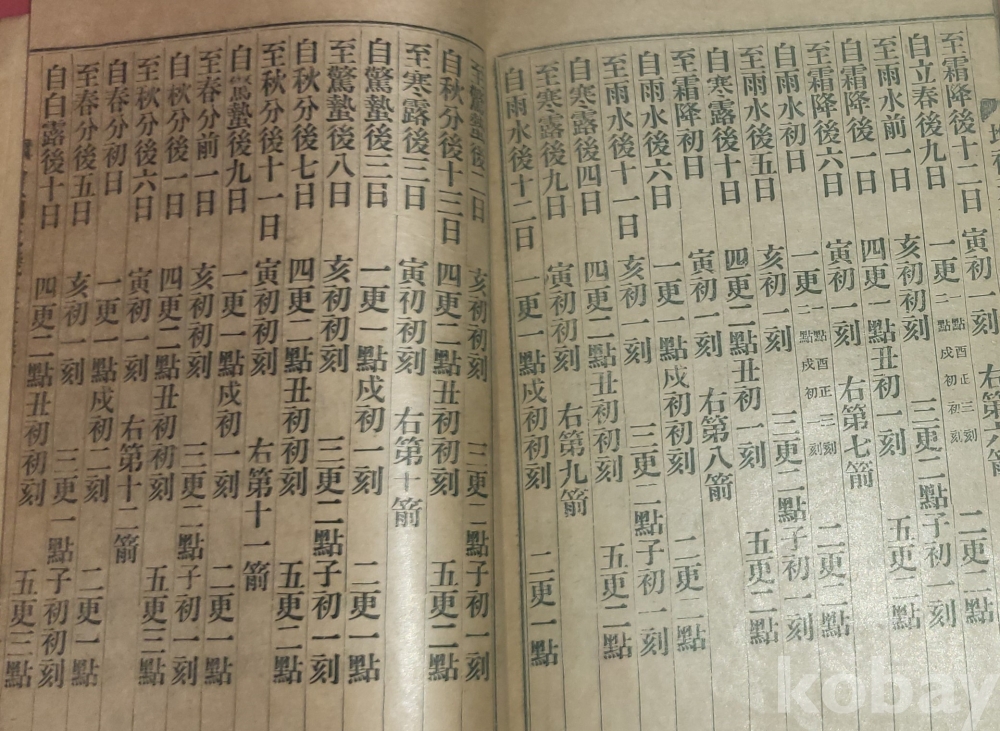 至霜降後十二日 寅初一刻 右第六箭
自立春後九日 一更 一點酉正三刻 二點戌初初刻 二更二點
至雨水前一日 亥初初刻 三更二點子初一刻
自霜降後一日 四更一點丑初一刻 五更二點
至霜降後六日 寅初一刻 右第七箭
自雨水初日 一更 一點酉正三刻 二點戌初初刻 二更二點
至雨水後五日 亥初一刻 三更二點子初一刻
自寒露後十日 四更二點丑初一刻 五更二點
至霜降初日 寅初一刻 右第八箭
自雨水後六日 一更一點戌初一刻 二更二點
至雨水後十一日 亥初一刻 三更二點子初一刻
自寒露後四日 四更二點丑初初刻 五更二點
至寒露後九日 寅初初刻 右第九箭
自雨水後十二日 一更一點戌初初刻 二更一點
至驚蟄後二日 亥初初刻 三更二點子初一刻
自秋分後十三日 四更二點丑初初刻 五更二點
至寒露後三日 寅初初刻 右第十箭
自驚蟄後三日 一更一點戌初一刻 二更一點
至驚蟄後八日 亥初初刻 三更二點子初一刻
自秋分後七日 四更二點丑初初刻 五更二點
至秋分後十一日 寅初初刻 右第十一箭
自驚蟄後九日 一更一點戌初一刻 二更一點
至春分前一日 亥初初刻 三更二點子初一刻
自秋分後一日 四更二點丑初初刻 五更三點
至秋分後六日 寅初一刻 右第十二箭
自春分初日 一更一點戌初二刻 二更一點
至春分後五日 亥初一刻 三更一點子初初刻
自白露後十日 四更二點丑初初刻 五更三點
kobay